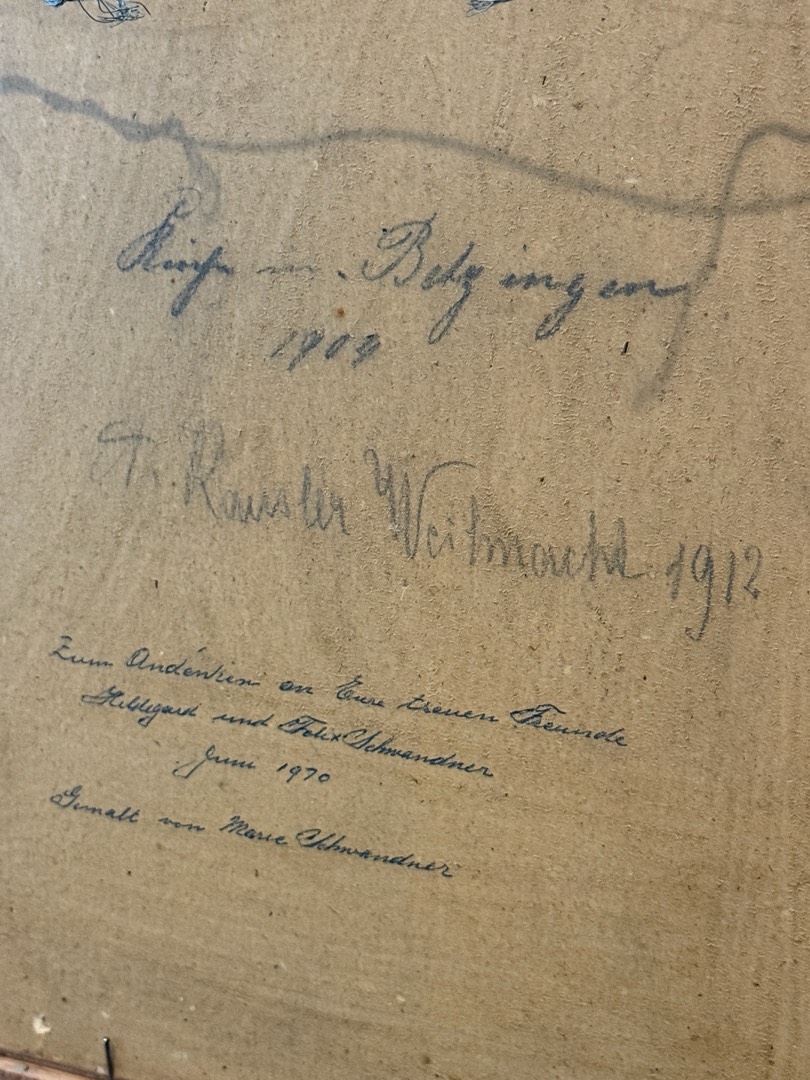 Kirche in Betzingen
1909
F. Kausler Weihnacht 1912
Zum Andenken an Eure treuen Freunde
Hildegard und Felix Schwandner
Juni 1970
Gemalt von Marie Schwandner